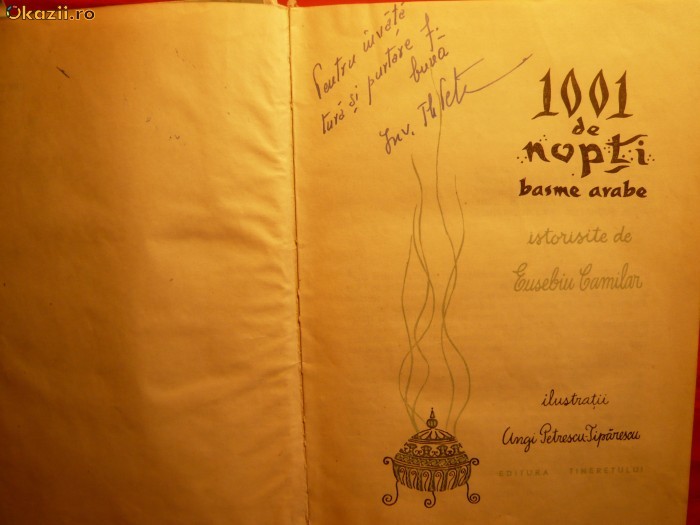 Okazii.ro
Pentru învăță
tură și purtare f.
bună
Inv.
1001
de
nopți
basme arabe
istorisite de
Eusebiu Camilar
ilustrații
Angi Petrescu-Tipărescu
EDITURA TINERETULUI